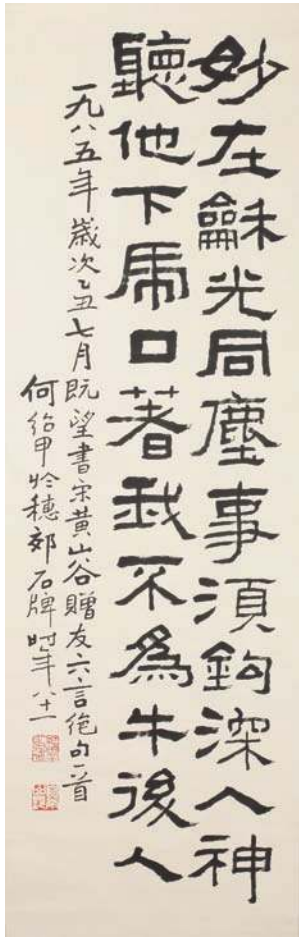 妙在龢光同塵事須鈎深入神
聽他下虎口著我不為牛後人
一九八五年歲次乙丑七月既望書宋黃山谷贈友六言绝句一首
何紹甲於穗郊石牌时年八十一